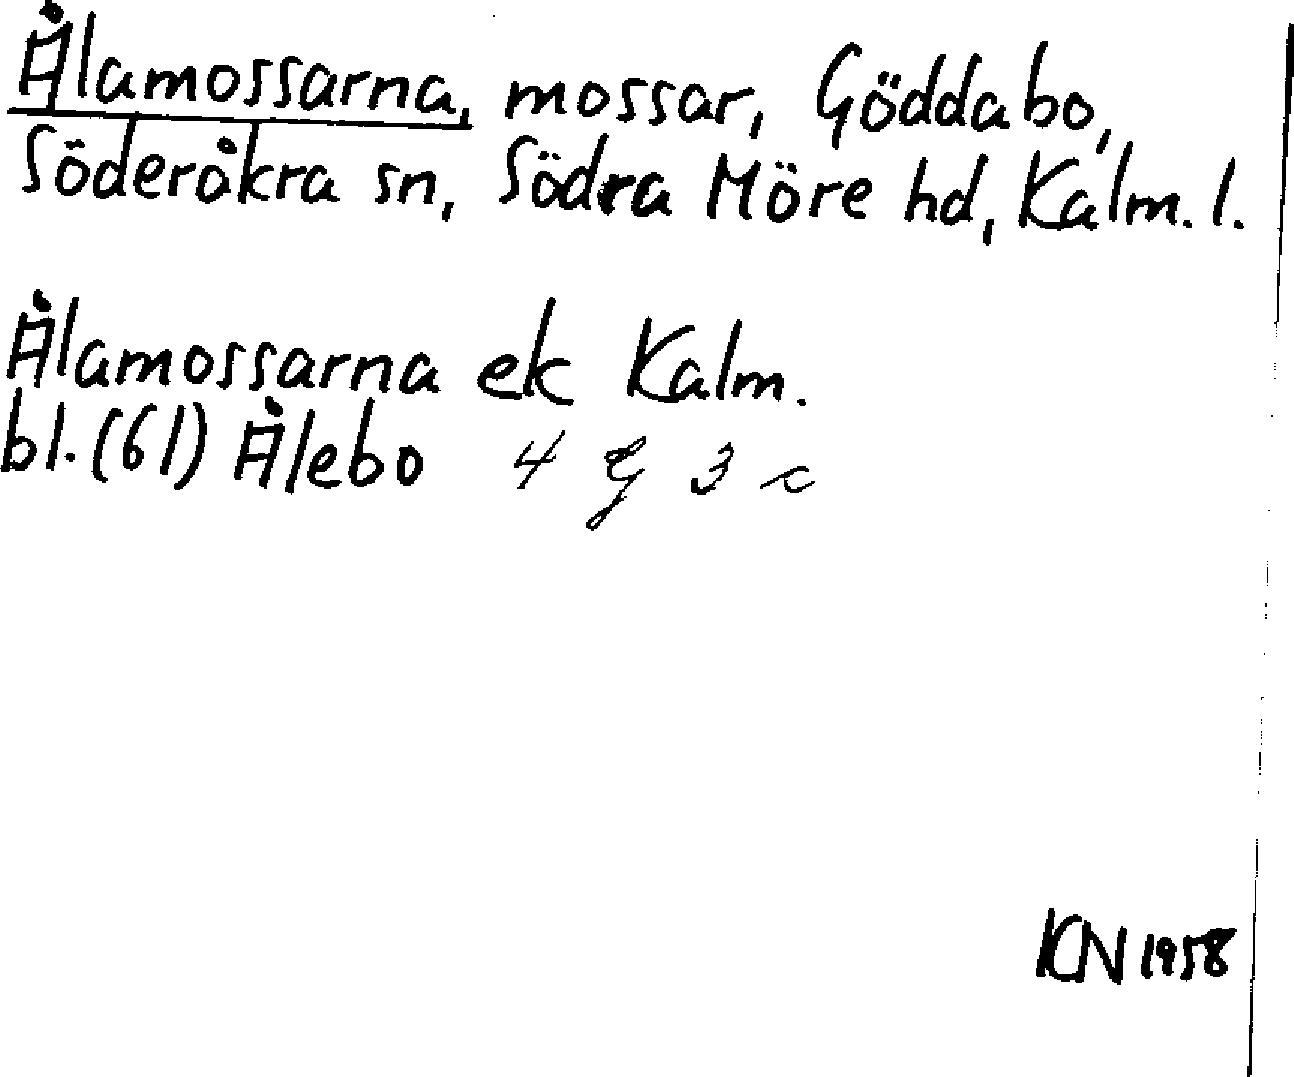 Ålamossarna, mossar, Göddabo,
Söderåkra sn, Södra Möre hd, Kalm. l.
Ålamossarna ek Kalm.
bl. (61) Ålebo 4 G 3 c
KN 1958